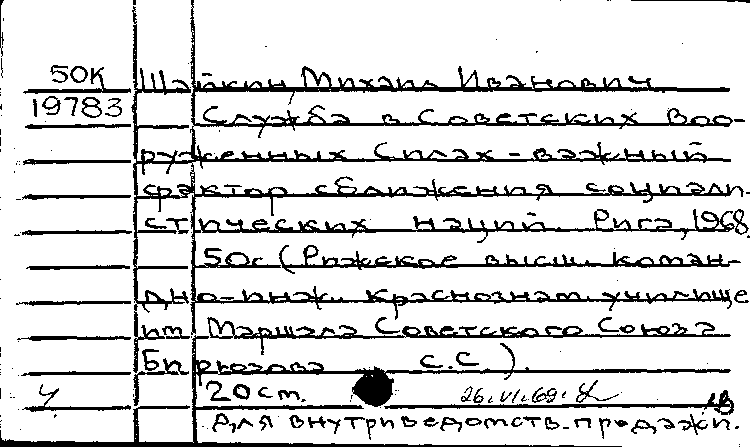 50К Шапкин Михаил Иванович
19783 Служба в Советских Воо-
руженных Силах - важный
фактор сближения социали-
стических наций. Рига, 1968,
50с (Рижское высш. коман-
дно-инж. краснознам. училище
им Маршала Советского Союза
Бирюзова С.С.).
20 ст. 26.VI.69.
для внутриведомств. продажи.